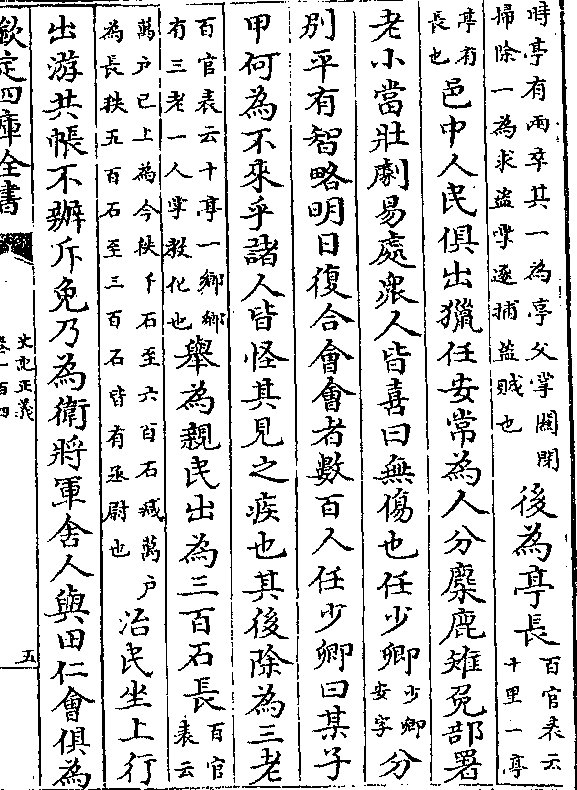 時亭有兩卒其一為亭父掌關閉
掃除一為求盜掌逐捕盜賊也
後為亭長
百官表云
十里一亭
亭有
長也
邑中人民俱出獵任安常為人分麋鹿雉兔部署
老小當壯劇易處衆人皆喜曰無傷也任少卿
少卿
安字
分
别平有智略明日復合會會者數百人任少卿曰某子
甲何為不來乎諸人皆怪其見之疾也其後除為三老
百官表云十亭一鄉鄉
有三老一人掌教化也
舉為親民出為三百石長
百官
表云
萬户已上為令秩千石至六百石減萬户
為長秩五百石至三百石皆有丞尉也
治民坐上行
出游共帳不辦斥免乃為衛將軍舍人與田仁會俱為
欽定四庫全書
史記正義
卷一百四
五